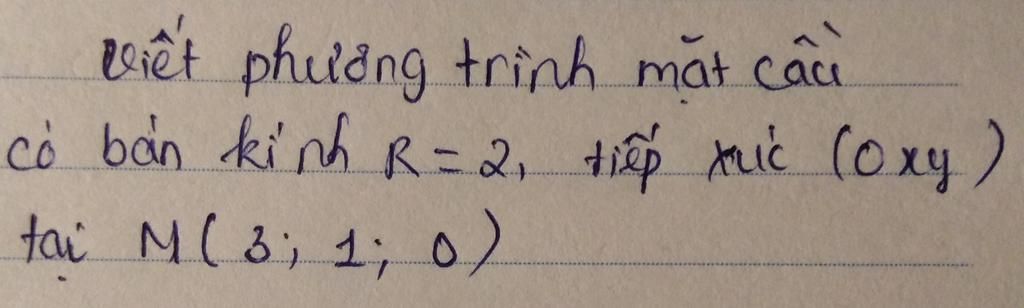 Viết phương trình mặt cầu
có bán kính R = 2, tiếp xúc (Oxy)
tại M( 3; 1; 0)